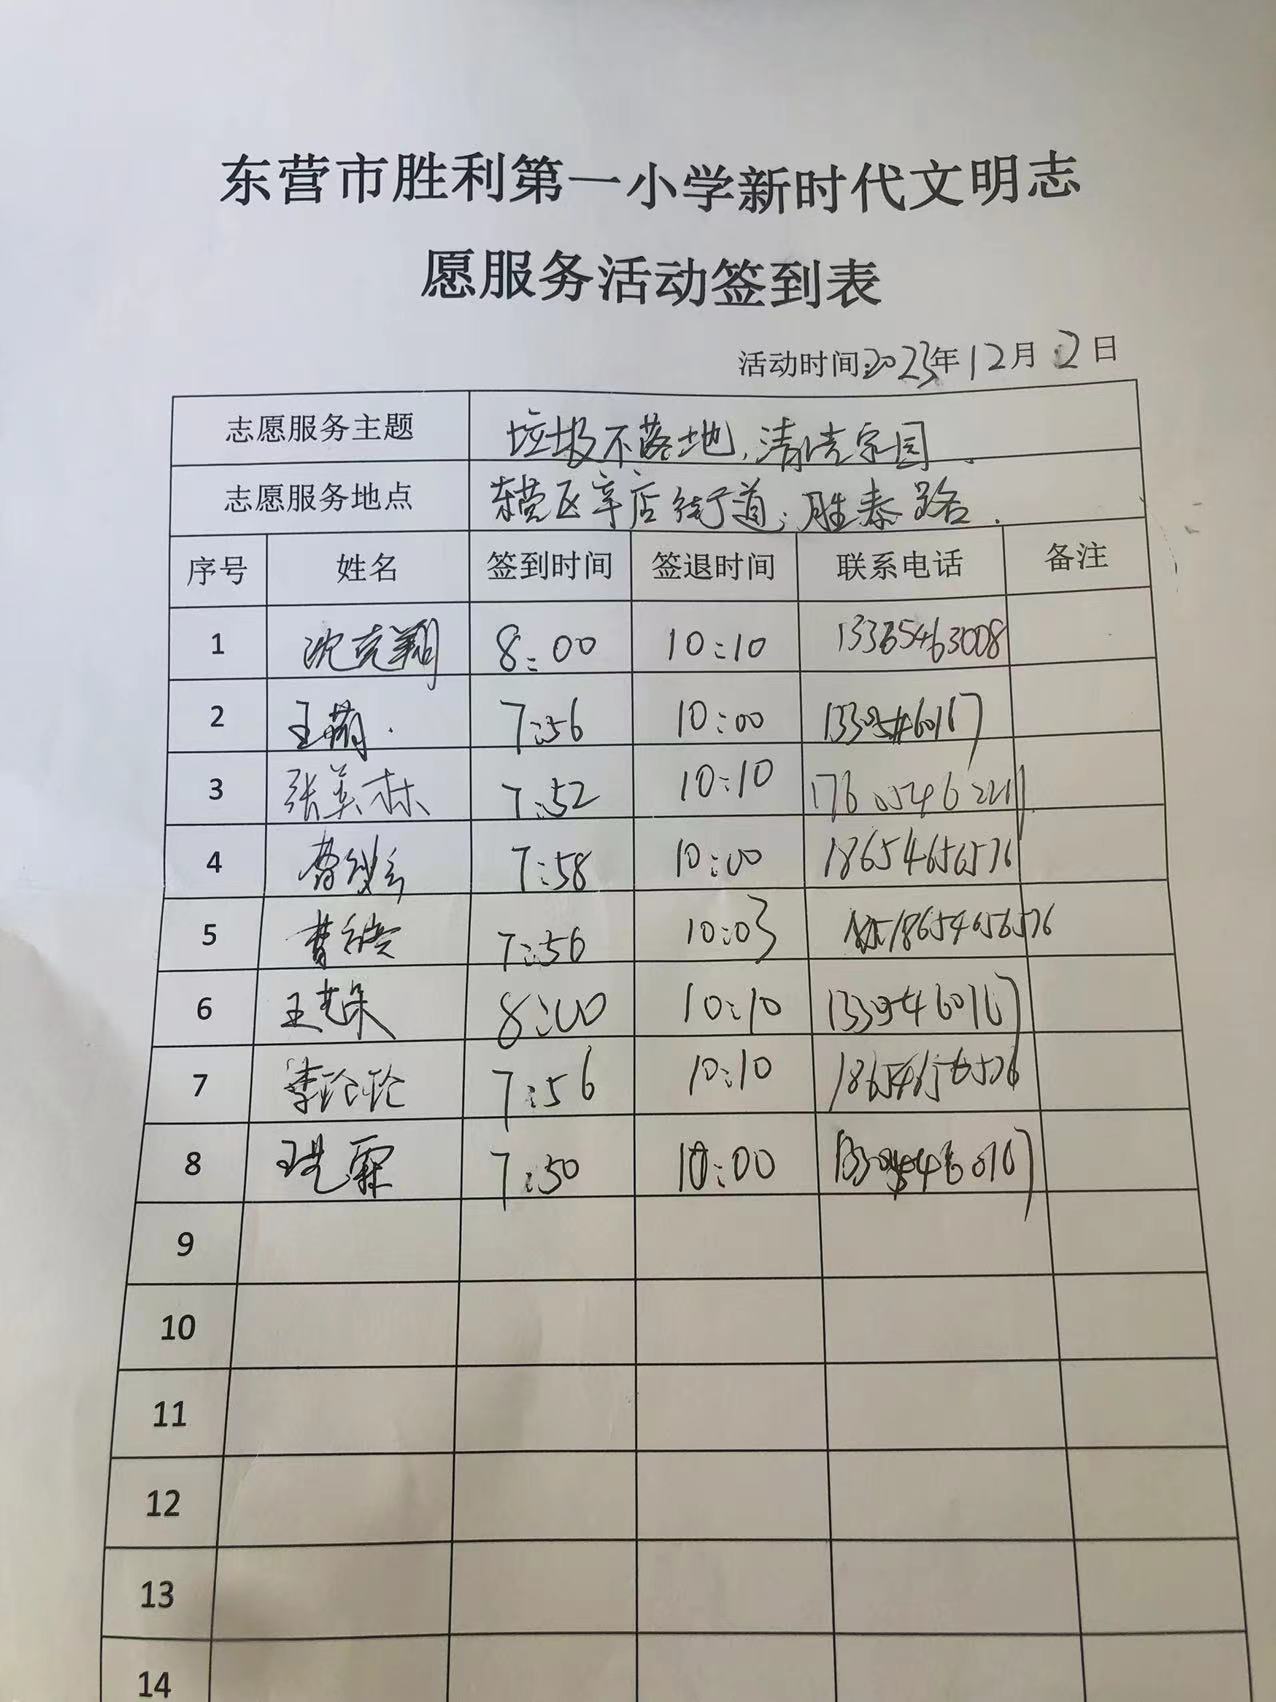 东营市胜利第一小学新时代文明志
愿服务活动签到表
活动时间:2023年12月2日
志愿服务主题 垃圾不落地,清洁家园.
志愿服务地点 东营区辛店街道;胜泰路.
序号 姓名 签到时间 签退时间 联系电话 备注
1 沈克翔 8:00 10:10 13365463008
2 王萌 7:56 10:00
3 张美林 7:52 10:10
4 7:58 10:00 18654656576
5 7:56 10:03 18654656576
6 8:00 10:10
7 李玲玲 7:56 10:10 18654656576
8 7:50 10:00
9
10
11
12
13
14